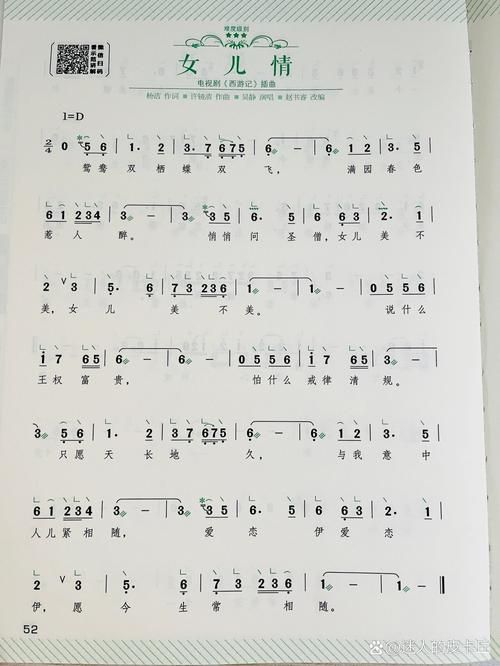 难度级别
★★★
微信扫码
看示范讲解
女儿情
电视剧《西游记》插曲
杨洁 作词 许镜清 作曲 吴静 演唱 赵书睿 改编
1=D
2/4 0 5 6 | 1· 2 | 3 5 7 675 | 6 - | 6· - | 1 2 3· 5 |
鸳鸯双栖蝶双飞, 满园春色
6 1 2 34 | 3 - | 3· 3 5 | 6· 5 | 5 6 63 | 2· 1 |
惹人醉。 悄悄问圣僧,女儿美不
2 ∨ 3 | 5· 6 | 7 3 236 | 1 - | 1 - | 0 5 5 56 |
美,女儿美不美。 说什么
1 7 65 | 6 - | 6 - | 0 5 5 56 | 1 7 65 | 3 - |
王权富贵, 怕什么戒律清规。
3 5 6 | 1· 2 | 3 5 7 675 | 6 - | 6 - | 1 2 3· 5 |
只愿天长地久, 与我意中
6 1 2 34 | 3 - | 3· 3 5 | 6· 5 | 5 6 63 | 2· 1 |
人儿紧相随, 爱恋伊爱恋
2 ∨ 3 | 5· 6 | 7 3 236 | 1 - | 1 - ‖
伊,愿今生常相随。
52
@迷人的皮卡丘